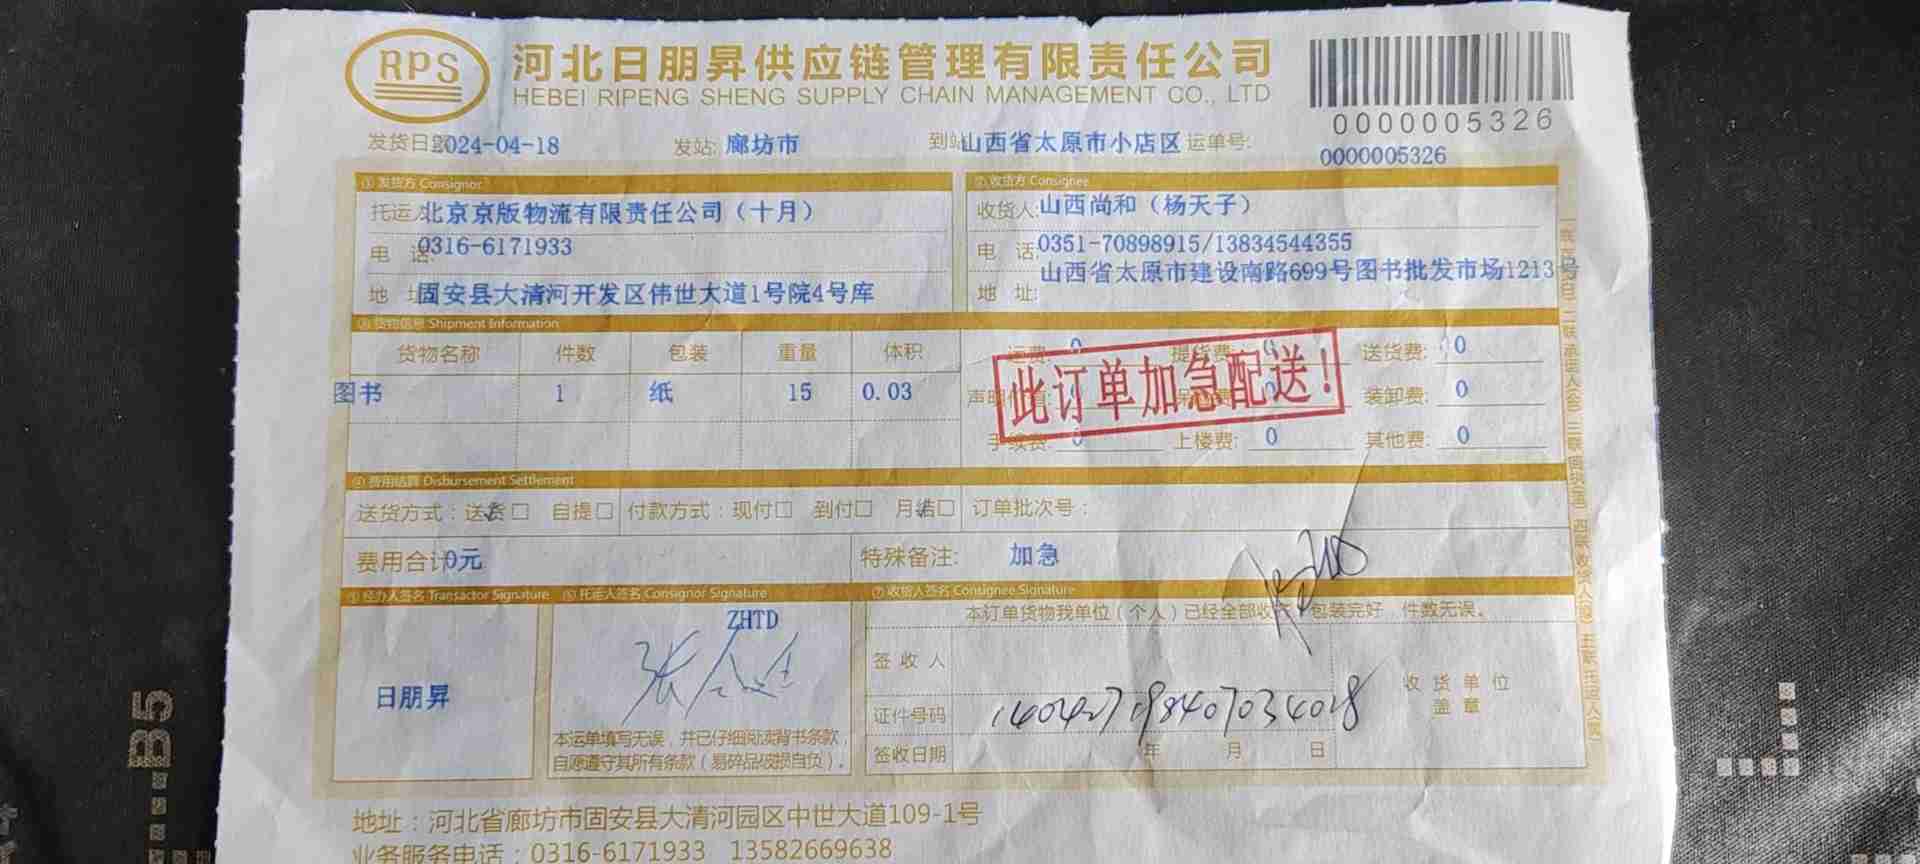 RPS 河北日朋昇供应链管理有限责任公司
HEBEI RIPENG SHENG SUPPLY CHAIN MANAGEMENT CO., LTD
0000005326
发货日期 2024-04-18 发站: 廊坊市 到站 山西省太原市小店区 运单号: 0000005326
① 发货方 Consignor ② 收货方 Consignee
托运人 北京京版物流有限责任公司（十月） 收货人: 山西尚和（杨天子）
电 话: 0316-6171933 电 话: 0351-70898915/13834544355
地 址 固安县大清河开发区伟世大道1号院4号库 地 址: 山西省太原市建设南路699号图书批发市场1213号
③ 货物信息 Shipment Information
货物名称 件数 包装 重量 体积 运费: 0 提货费: 0 送货费: 0
图书 1 纸 15 0.03 声明价值: 0 装卸费: 0
此订单加急配送！
手续费: 0 上楼费: 0 其他费: 0
④ 费用结算 Disbursement Settlement
送货方式：送货□ 自提□ 付款方式：现付□ 到付□ 月结□ 订单批次号：
费用合计 0元 特殊备注: 加急
⑤ 经办人签名 Transactor Signature ⑥ 托运人签名 Consignor Signature ⑦ 收货人签名 Consignee Signature
ZHTD 本订单货物我单位（个人）已经全部收 包装完好，件数无误。
日朋昇
签收人
收货单位
盖章
证件号码 140427198407034018
签收日期 年 月 日
本运单填写无误，并已仔细阅读背书条款，
自愿遵守其所有条款（易碎品破损自负）。
地址：河北省廊坊市固安县大清河园区中世大道109-1号
业务服务电话：0316-6171933 13582669638
B5